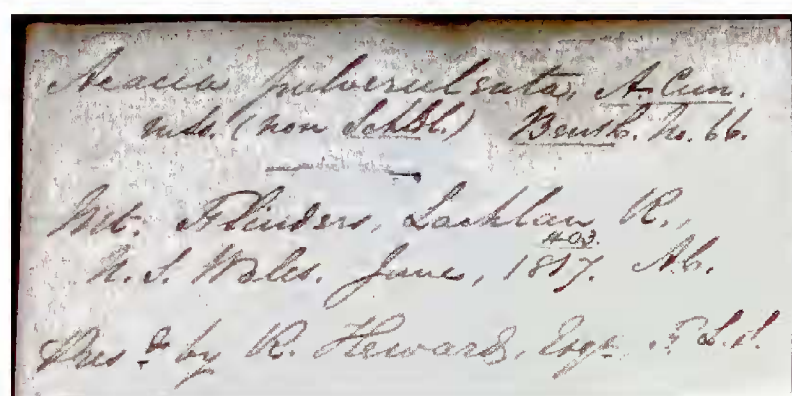 Acacia pulverulenta, A. Cun.
mss. (non Schldl.) Benth. No. 66.
Mt. Flinders, Lachlan R.,
403.
N. S. Wales. June, 1817. A.C.
Pres.d by R. Heward, Esqe. F. L. S.